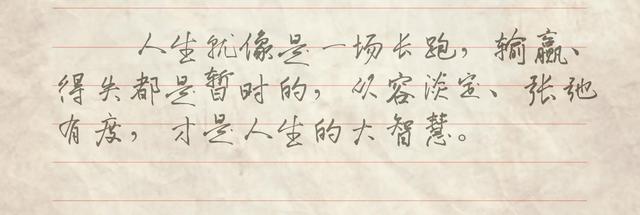 人生就像是一场长跑，输赢、
得失都是暂时的，从容淡定、张弛
有度，才是人生的大智慧。